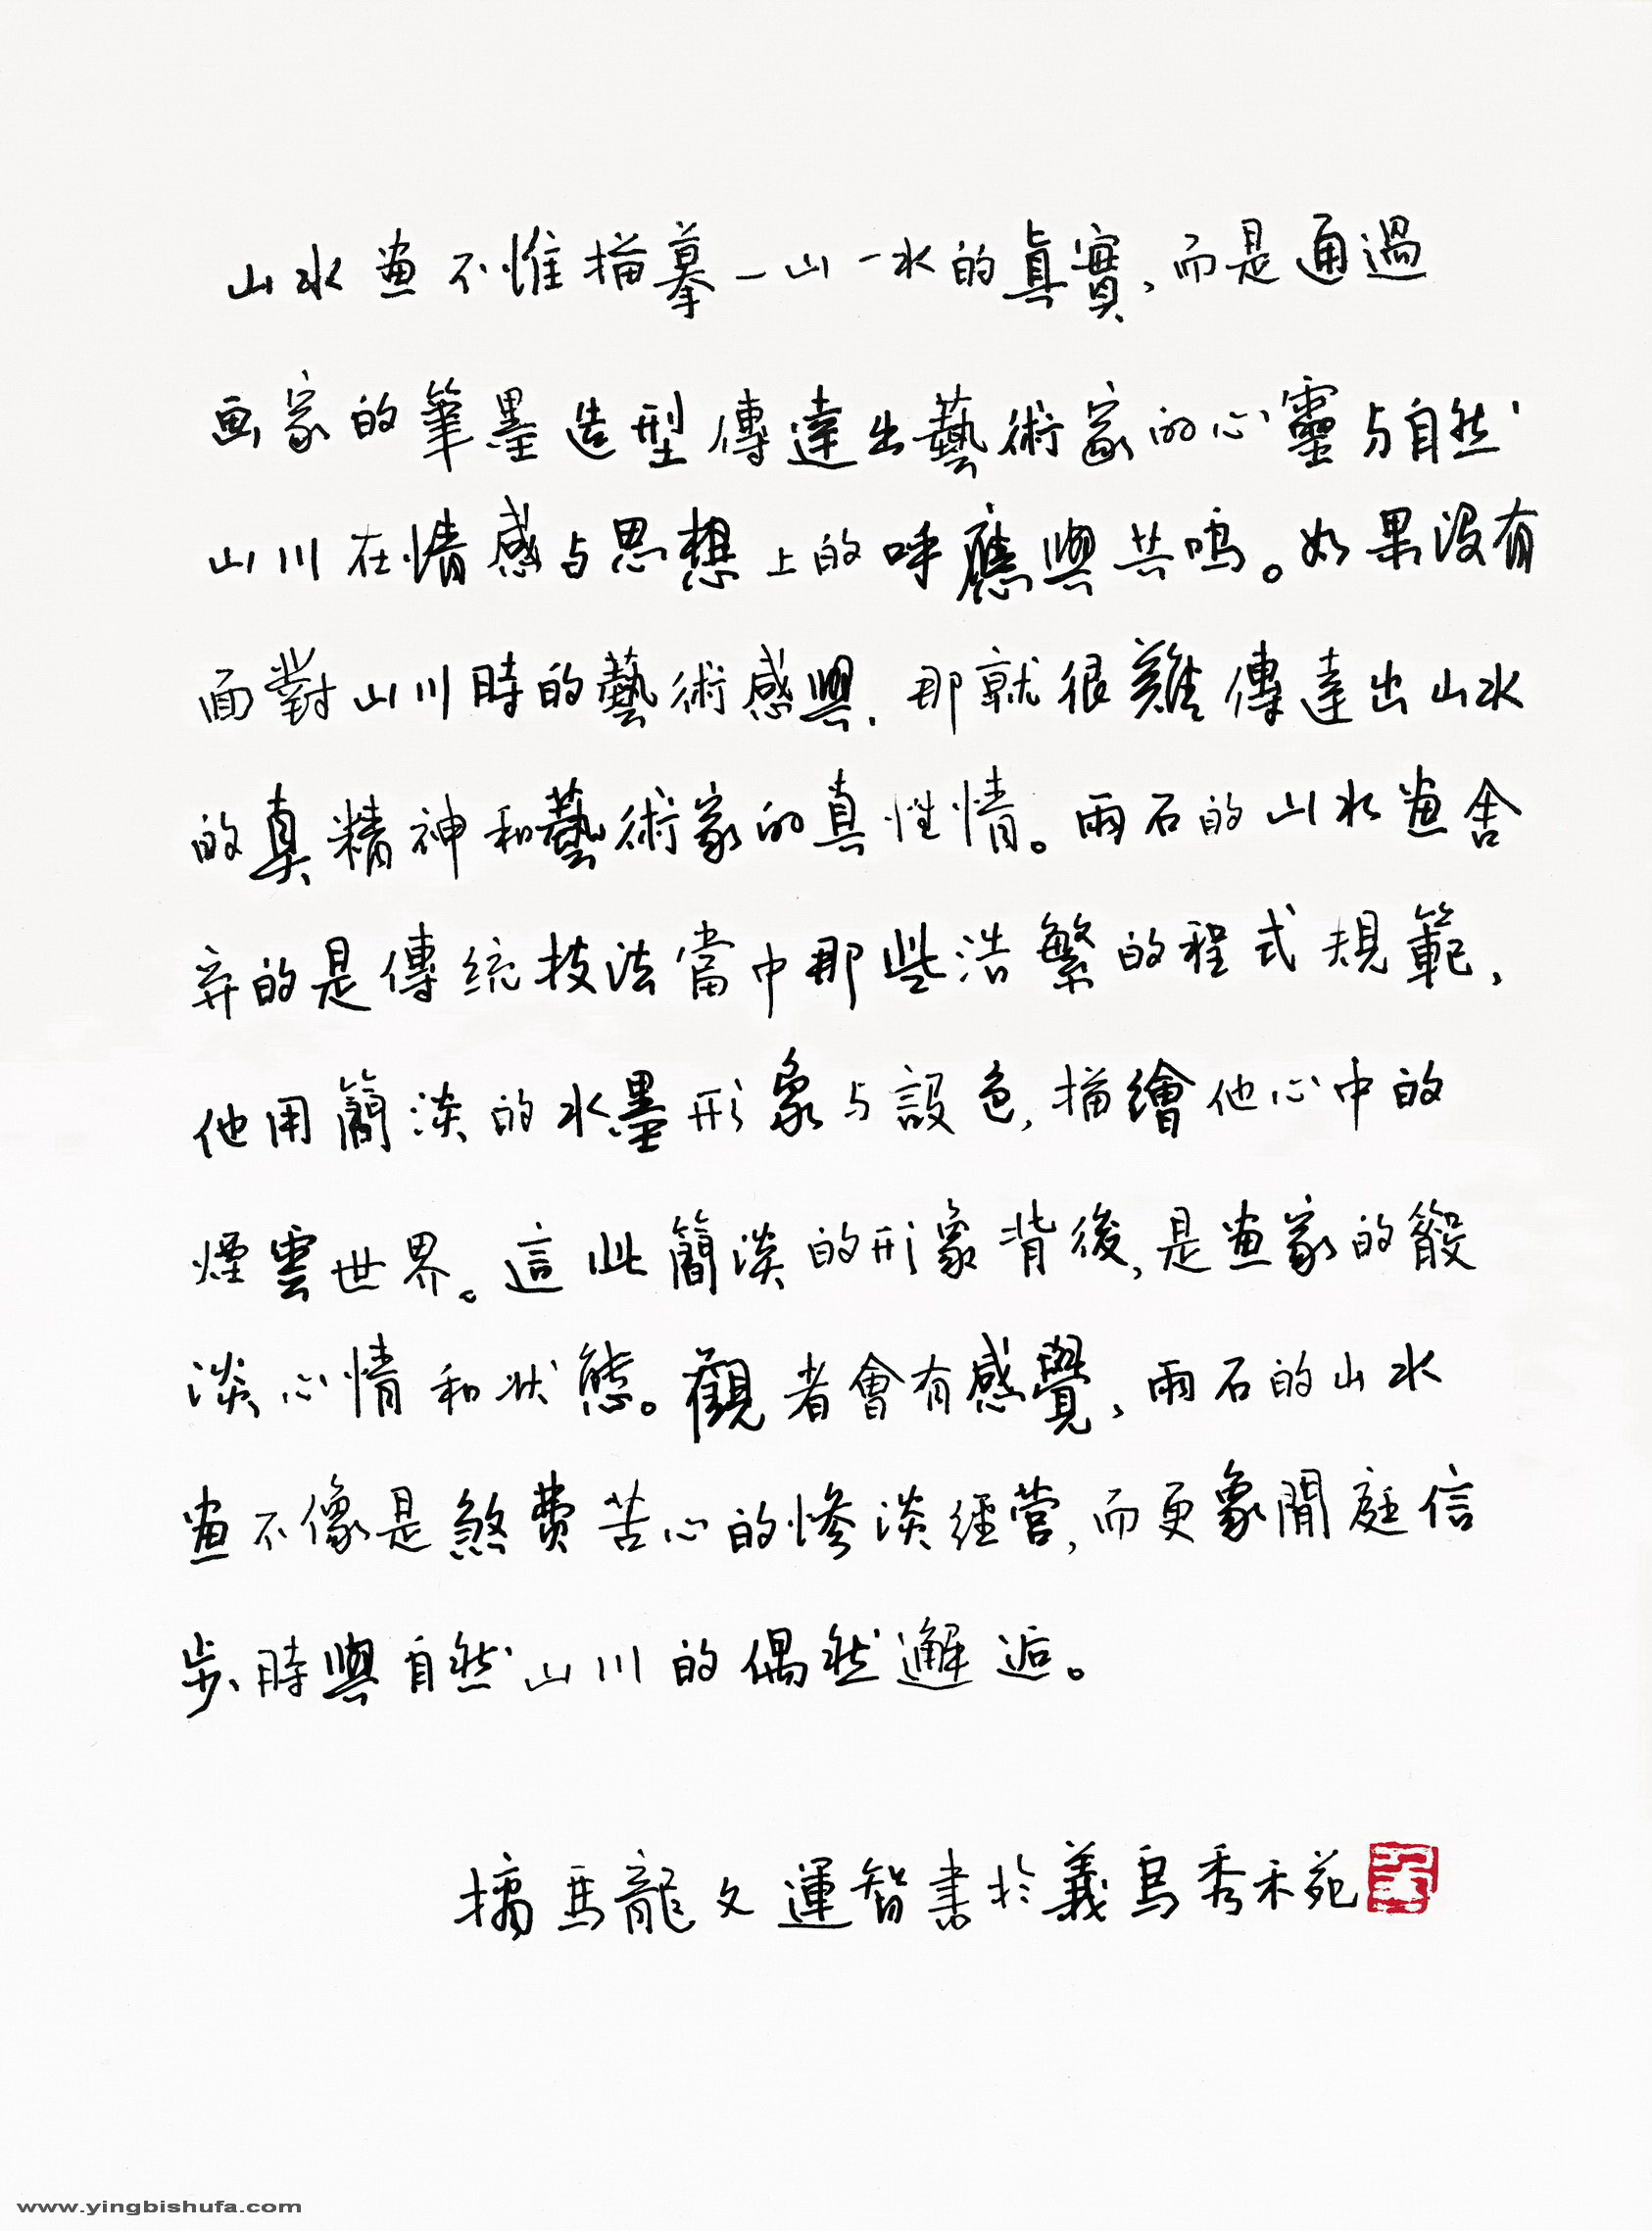 山水畫不惟描摹一山一水的真實、而是通過
画家的筆墨造型傳達出藝術家的心靈与自然
山川在情感与思想上的呼應與共鸣。如果沒有
面對山川時的藝術感興.那就很難傳達出山水
的真精神和藝術家的真性情。雨石的山水畫舍
弃的是傳統技法當中那些浩繁的程式規範、
他用簡淡的水墨形象与設色,描繪他心中的
煙雲世界。這些簡淡的形象背後,是畫家的
淡心情和状態。觀者會有感覺、雨石的山水
畫不像是煞费苦心的惨淡經营,而更象閒庭信
步、時與自然山川的偶然邂逅。
摘馬龍文運智書於義烏秀禾苑
www.yingbishufa.com